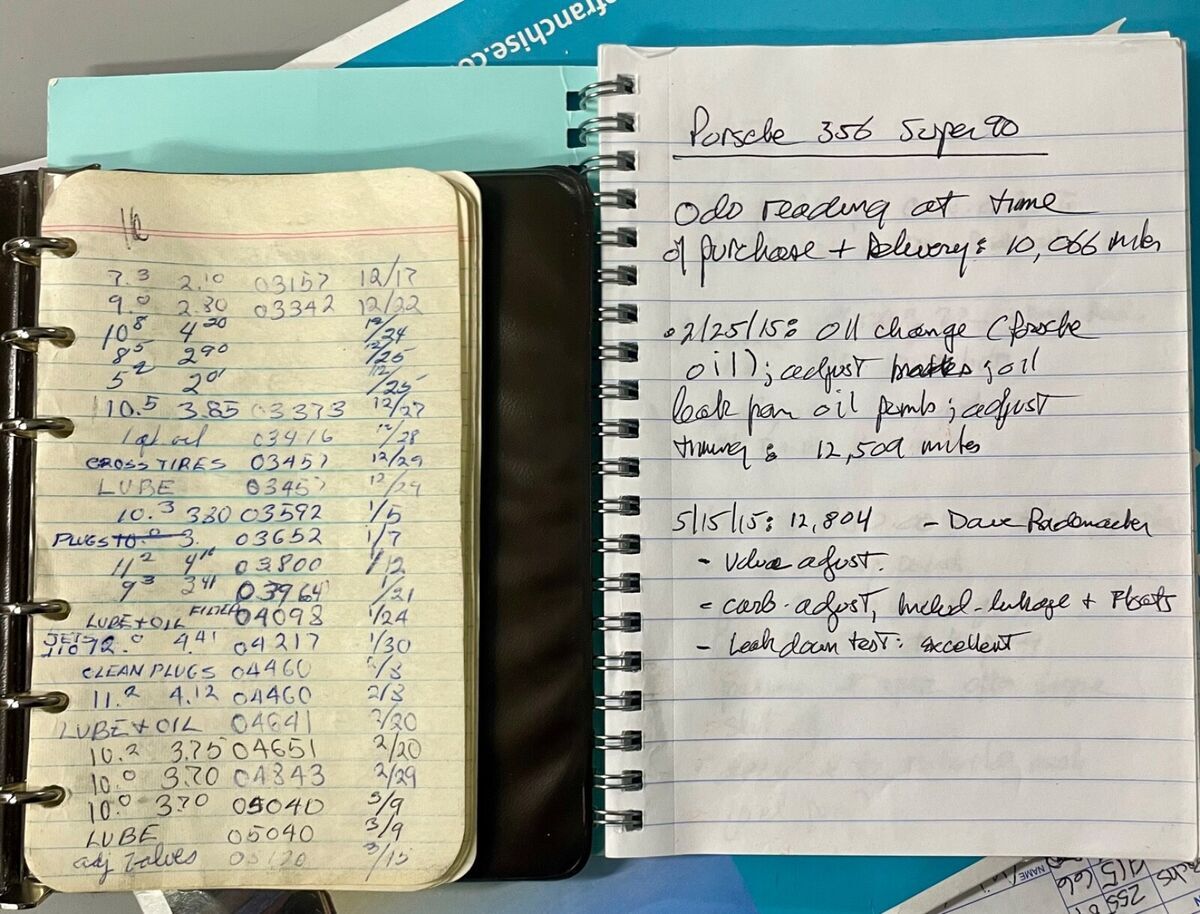 franchise.co
16
7.3 2.10 03157 12/17
9.0 2.80 03342 12/22
10 8 4 20 12/24
8 5 2 90 12/25
5 2 2 01 12/25
10.5 3.85 03373 12/27
1 qt oil 03416 12/28
CROSS TIRES 03457 12/29
LUBE 03457 12/29
10.3 3.80 03592 1/5
PLUGS 3. 03652 1/7
11 2 4 16 03800 1/12
9 3 3 41 03964 1/21
LUBE + OIL FILTER 04098 1/24
JETS
.0 4.41 04217 1/30
CLEAN PLUGS 04460 2/3
11.2 4.12 04460 2/3
LUBE + OIL 04641 2/20
10.2 3.75 04651 2/20
10.0 3.70 04843 2/29
10.0 3.70 05040 3/9
LUBE 05040 3/9
adj valves 05120 3/15
Porsche 356 Super 90
Odo reading at time
of purchase + Delivery: 10,066 miles
• 2/25/15: Oil change (Porsche
oil); adjust brakes; oil
leak from oil pump; adjust
timing: 12,509 miles
5/15/15: 12,804 - Dave Rademacher
- Valve adjust.
- carb. adjust, linkage +
- Leakdown test: excellent
NAME
255